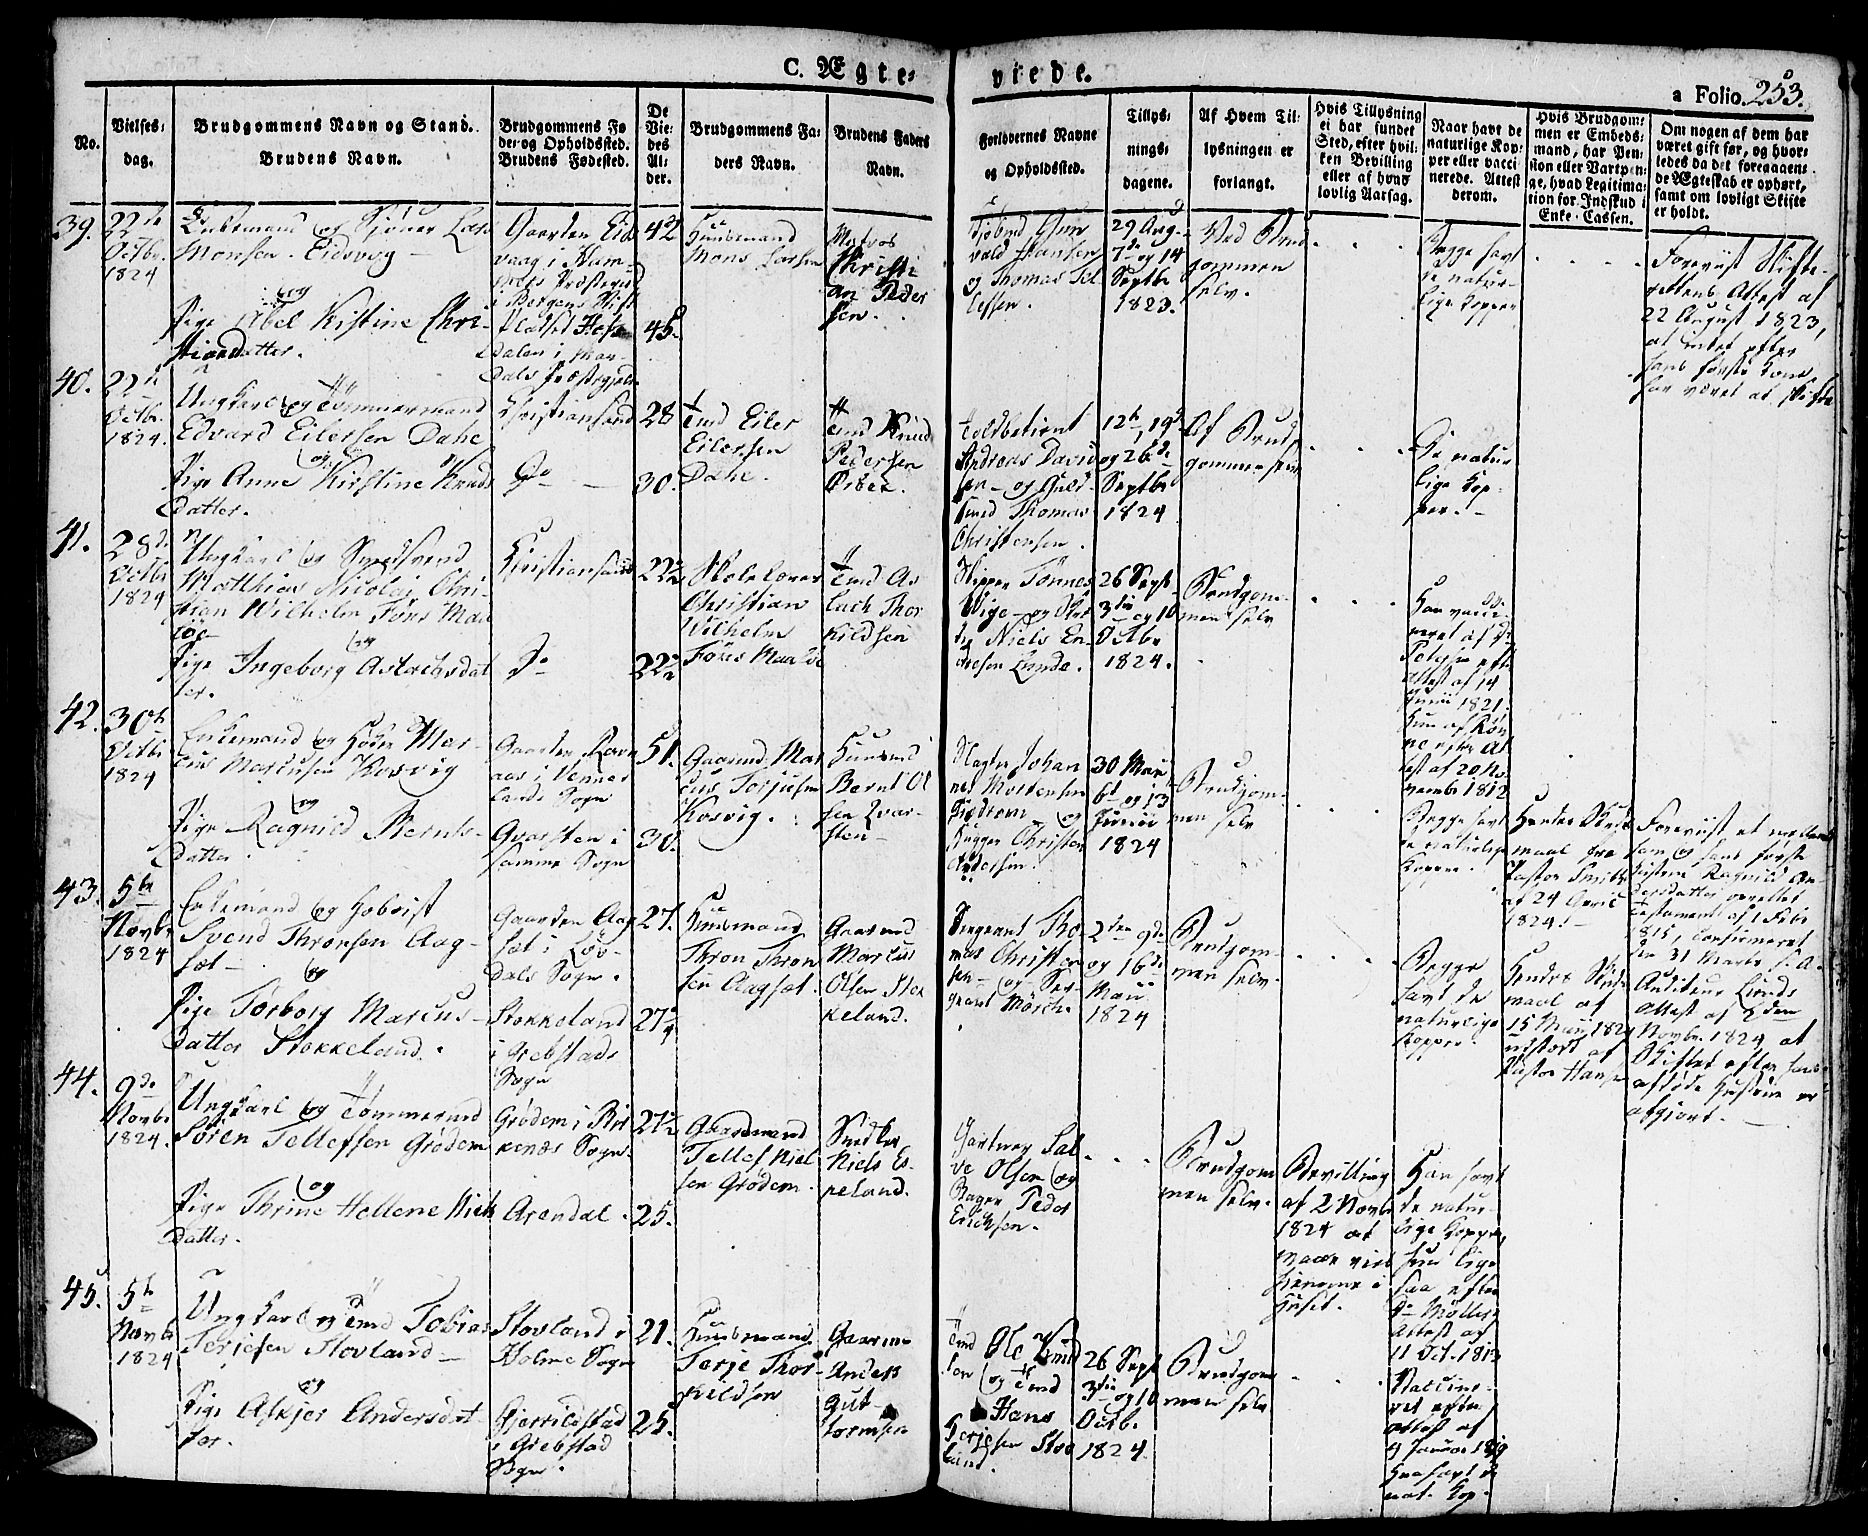 C. Ægte-
viede.
a Folio 253.
No.
Vielses-
dag.
Brudgommens Navn og Stand.
Brudens Navn.
Brudgommens Fø
de- og Opholdssted.
Brudens Fødested.
De
Vie-
des
Al-
der.
Brudgommens Fa-
ders Navn.
Brudens Faders
Navn.
Forlovernes Navne
og Opholdssted.
Tillys-
nings-
dagene.
Af Hvem Til-
lysningen er
forlangt.
Hvis Tillysning
ei har fundet
Sted, efter hvil-
ken Bevilling
eller af hvad
lovlig Aarsag.
Naar havt de
naturlige Kop-
per eller vacci
nerede. Attest
derom.
Hvis Brudgom-
men er Embeds-
mand, har Pen-
sion eller Vartpen-
ge, hvad Legitima-
tion for Indskud i
Enke-Cassen.
Om nogen af dem har
været gift før, og hvor-
ledes da det foregaaen-
de Ægteskab er ophørt,
samt om lovligt Skifte
er holdt.
39.
22de
Octbr.
1824
Enkemand og
Monsen Eidsvog
og
Pige Abel Kistine Chri-
stiansdatter.
Gaarden Eids
vaag i Ham-
i Bergens Stift
Dalen i Man-
dals Præstegjeld
42
45.
Huusmand
Mons Larsen
Matros
Christi
an Peder
sen.
vald Hansen
og Thomas Tel
lefsen.
29 Aug.
7de og 14
Septbr
1823.
Ved Brud
gommen
selv.
Begge havt
de natur-
lige Kopper
Foreviist Skifte-
rettens Attest af
22 August 1823,
at intet efter
hans første Kone
har været at skifte
40.
22de
Octbr.
1824.
Ungkarl og Tømmermand
Edvard Eilersen Dahe
og
Pige Anne Kirstine Knuds
datter.
Christiansand
Do
28
30.
Tmd Eiler
Eilersen
Dahe.
Tmd Knud
Pedersen
Toldbetient
Andreas David
sen og Guld-
smed Thomas
Christensen.
12te, 19de
og 26de
Septbr
1824
Af Brud-
gommen selv
De natur
lige Kop-
per.
41.
28de
Octbr
1824
Ungkarl og Smedsvend
Matthias Nicolai Chri-
stian Wilhelm Føns Maa
løe
og
Pige Ingeborg Aslachsdat
ter.
Christiansand
Do
22½
22½
Skolelærer
Christian
Wilhelm
Føns Maaløe
Tmd As
lach Thor
kildsen
Skipper Tønnes
Vige og
Niels En-
dresen Lunde.
26 Sept
3die og 10
Octbr
1824.
Brudgom-
men selv
Han vacci-
neret af Dr
attest af 14
Junii 1821.
Hun af
test af 20 No-
vembr 1812
42.
30te
Octbr
1824
Enkemand og Mar-
cus Marcussen Kosvig
og
Pige Ragnild Bernts-
datter
Gaarden Ravn
aas i Vennes
lands Sogn
Qvarsten i
samme Sogn
51.
30.
Gaarmd Mar
cus Torjusen
Kosvig.
Huusmd
Bernt Ol
sen Qvar-
sten
Slagter Johan
nes Mortensen
og
Christen
Andersen.
30 Maii
6te og 13
Junii
1824
Brudgom-
men selv
Begge havt
de naturlige
Kopper.
Hendes Skuds-
maal fra
Pastor Smith
af 24 April
1824.
Foreviist et mellem
ham og hans første
Hustrue Ragnild An
dersdatter oprettet
Testament af 1 Febr
1815, confirmeret
den 31 Marts s. A.
43.
5te
Novbr
1824
Enkemand og Hoboist
Svend Thronsen Aag-
set
og
Pige Torborg Marcus-
datter Stokkeland.
Gaarden Aag
set i Løv-
dals Sogn.
Stokkeland
i Grebstads
Sogn
27.
27¾
Huusmand
Thron Thron
sen Aagset.
Gaarmd
Marcus
Olsen Stok
keland.
Sergeant Tho
mas Christen
sen og Ser-
geant Mörch.
2den 9de
og 16de
Maii
1824
Brudgom-
men selv.
Begge
havt de
naturlige
Kopper.
Hendes Skuds-
maal af
15 Maii 1824
udstædt af
Pastor Hansen
Auditeur Lunds
Attest af 2den
Novbr. 1824 at
Skiftet efter hans
afdøde Hustrue er
afgiort.
44.
9de
Novbr.
1824.
Ungkarl og Tømmermd
Søren Tellefsen Grødem
og
Pige Thrine Hellene Niels
datter.
Grødem i Bir
kenæs Sogn.
Arendal.
27½
25.
Gaardmand
Tellef Niel
sen Grødem.
Snedker
Niels Es-
peland.
Gartner Sal
ve Olsen og
Bager Peder
Erichsen.
Brudgom
men selv.
Bevilling
af 2 Novbr
1824 at
maae vies
hjemme i
Huset.
Han havt
de natur-
lige Kopper,
hun lige
saa efter
Dr Møllers
Attest af
11 Oct. 1813
45.
5te
Novbr
1824
Ungkarl og Tmd Tobias
Terjesen Stovland
og
Pige Askjer Andersdat-
ter.
Stovland i
Holme Sogn
i Grebstad
Sogn.
21.
25.
Huusmand
Terje Thor-
kildsen
Gaarm
Anders
Gut-
tormsen
Tmd Ole Knud
sen og Tmd
Hans
Terje
sen Stov
land.
26 Sept
3die og 10
Octb.
1824.
Brudgom
men selv.
Vaccine-
ret efter
attest af
9 Januar 1819
Hun havt de
nat. Kop.